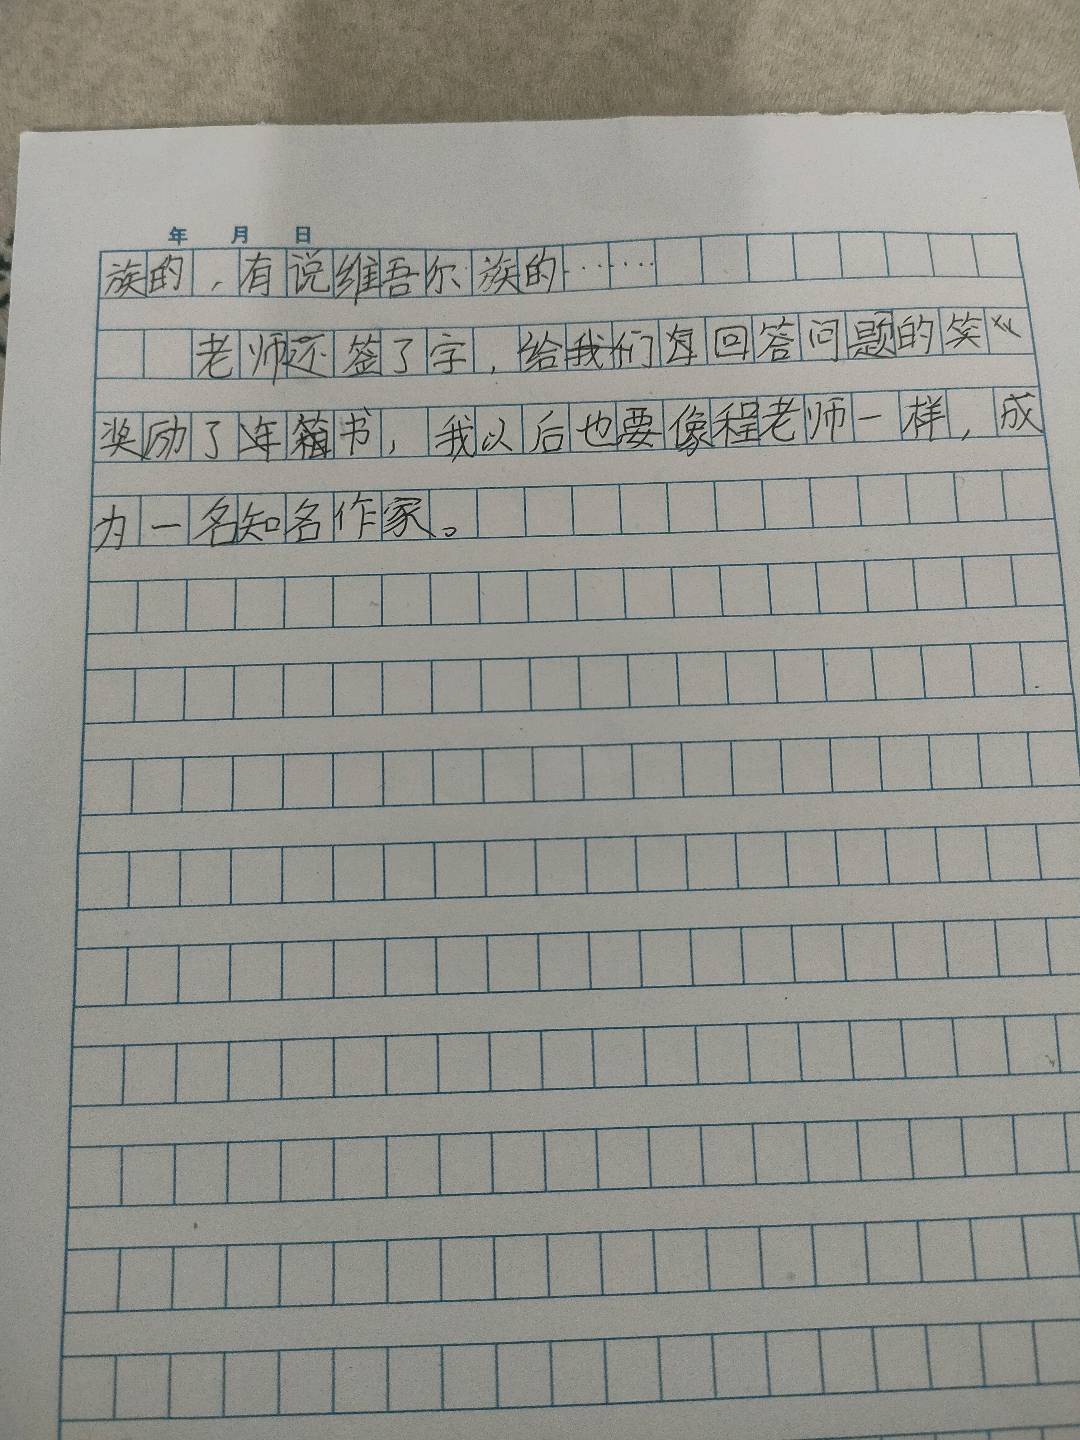 年 月 日
族的,有说维吾尔族的……
老师还签了字,给我们每回答问题的
奖励了 书,我以后也要像程老师一样,成
为一名知名作家。